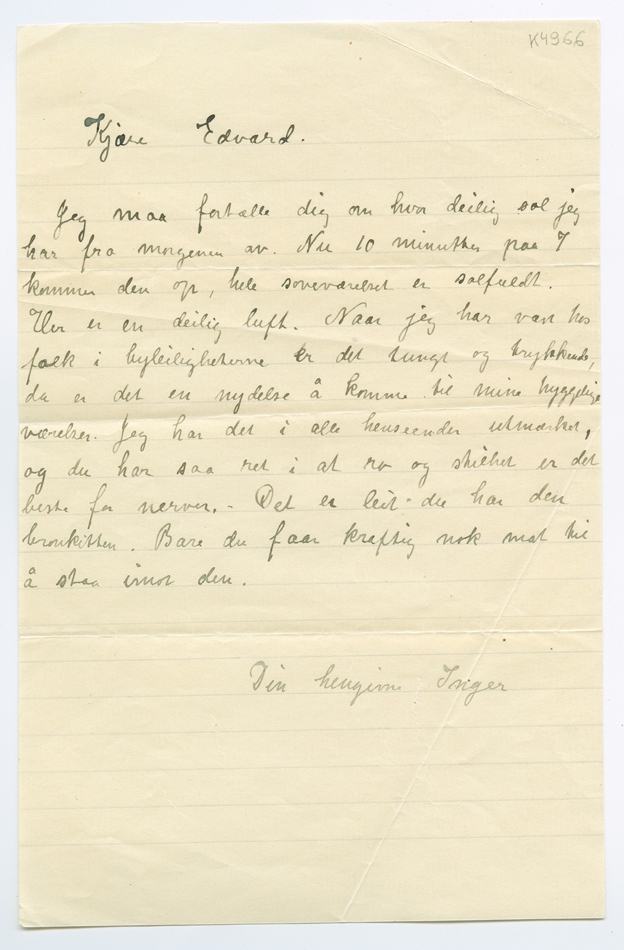 K4966
Kjære Edvard.
Jeg maa fortælle dig om hvor deilig sol jeg
har fra morgenen av. Nu 10 minutter paa 7
kommer den op, hele soveværelset er solfuldt.
Her er en deilig luft. Naar jeg har vært hos
folk i byleilighetene er det tungt og trykkende,
da er det en nydelse å komme til mine hyggelige
værelser. Jeg har det i alle henseender utmærket,
og du har saa ret i at ro og stilhet er det
beste for nerver. - Det er leit du har den
bronkitten. Bare du faar kraftig nok mat til
å staa imot den.
Din hengivne Inger